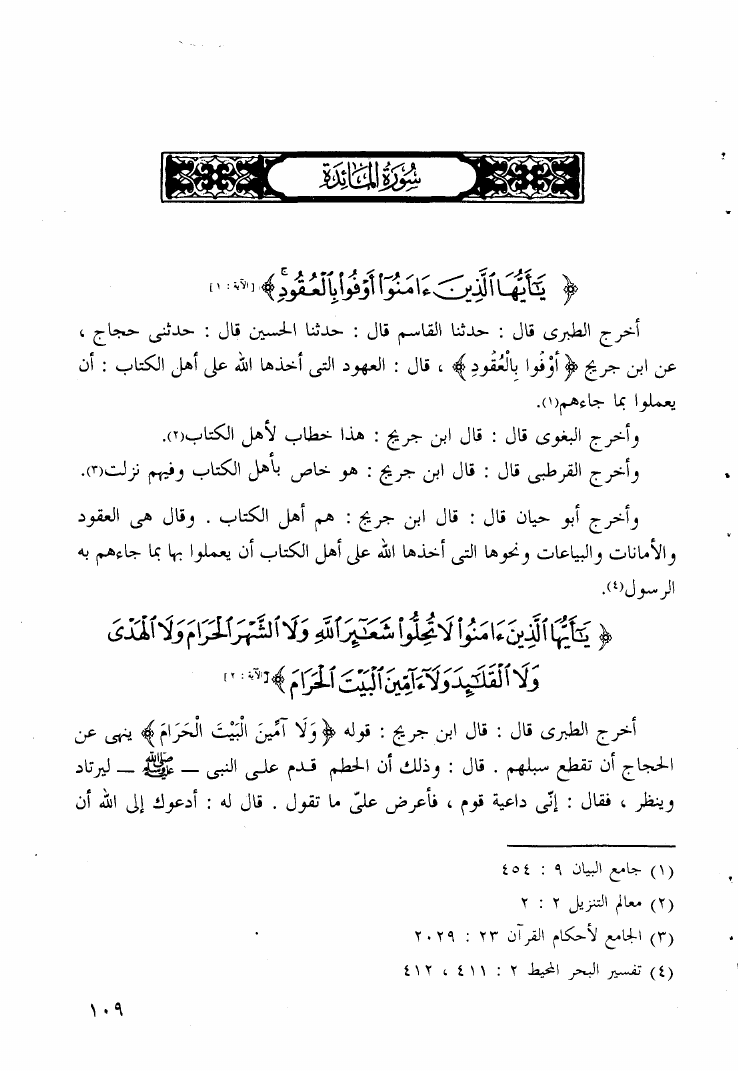 سُورَةُ المَائِدَةِ
﴿ يَٰٓأَيُّهَا ٱلَّذِينَ ءَامَنُوٓا۟ أَوْفُوا۟ بِٱلْعُقُودِ ۚ ﴾ [الآية : ١]
أخرج الطبرى قال : حدثنا القاسم قال : حدثنا الحسين قال : حدثنى حجاج ،
عن ابن جريج ﴿ أَوْفُوا بِالْعُقُودِ ﴾ ، قال : العهود التى أخذها الله على أهل الكتاب : أن
يعملوا بما جاءهم(١).
وأخرج البغوى قال : قال ابن جريج : هذا خطاب لأهل الكتاب(٢).
وأخرج القرطبى قال : قال ابن جريج : هو خاص بأهل الكتاب وفيهم نزلت(٣).
وأخرج أبو حيان قال : قال ابن جريج : هم أهل الكتاب . وقال هى العقود
والأمانات والبياعات ونحوها التى أخذها الله على أهل الكتاب أن يعملوا بها بما جاءهم به
الرسول(٤).
﴿ يَٰٓأَيُّهَا ٱلَّذِينَ ءَامَنُوا۟ لَا تُحِلُّوا۟ شَعَٰٓئِرَ ٱللَّهِ وَلَا ٱلشَّهْرَ ٱلْحَرَامَ وَلَا ٱلْهَدْىَ
وَلَا ٱلْقَلَٰٓئِدَ وَلَآ ءَآمِّينَ ٱلْبَيْتَ ٱلْحَرَامَ ﴾ [الآية : ٢]
أخرج الطبرى قال : قال ابن جريج : قوله ﴿ وَلَا آمِّينَ الْبَيْتَ الْحَرَامَ ﴾ ينهى عن
الحجاج أن تقطع سبلهم . قال : وذلك أن الحطم قدم على النبى ــ ﷺ ــ ليرتاد
وينظر ، فقال : إنّى داعية قوم ، فأعرض علىّ ما تقول . قال له : أدعوك إلى الله أن
(١) جامع البيان ٩ : ٤٥٤
(٢) معالم التنزيل ٢ : ٢
(٣) الجامع لأحكام القرآن ٢٣ : ٢٠٢٩
(٤) تفسير البحر المحيط ٢ : ٤١١ ، ٤١٢
١٠٩